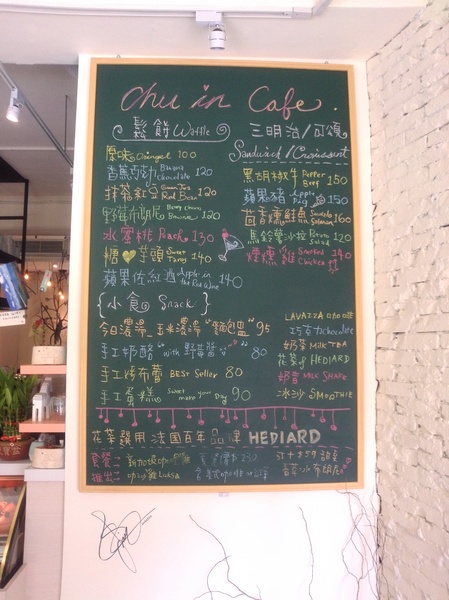 Chu in Cafe.
鬆餅 Waffle
原味 Original 100
香蕉巧克力 Banana Chocolate 120
抹茶紅豆 Red Bean 120
野莓布朗尼 Brownie 120
水蜜桃 Peach 130
糖♥芋頭 Sweet Taro 140
蘋果佐紅酒 Apple in the Red Wine 140
三明治/可頌
Sandwich/Croissant
黑胡椒牛 Pepper Beef 150
蘋果豬 Apple Pig 150
茴香燻鮭魚 Smoked Salmon 160
馬鈴薯沙拉 Potato Salad 120
煙燻雞 Smoked Chicken 140
{小食 Snack}
今日濃湯.玉米濃湯"麵包盅" 95
手工奶酪 "with 野莓醬" 80
手工烤布蕾 BEST Seller 80
手工蛋糕 Sweet your Day 90
LAVAZZA 咖啡
巧克力chocolate
奶茶 MILK TEA
花茶 HEDIARD
奶昔 MILK SHAKE
冰沙 SMOOTHIE
花茶選用 法国百年品牌 HEDIARD
套餐:新加坡
推出:叻沙雞 Luksa